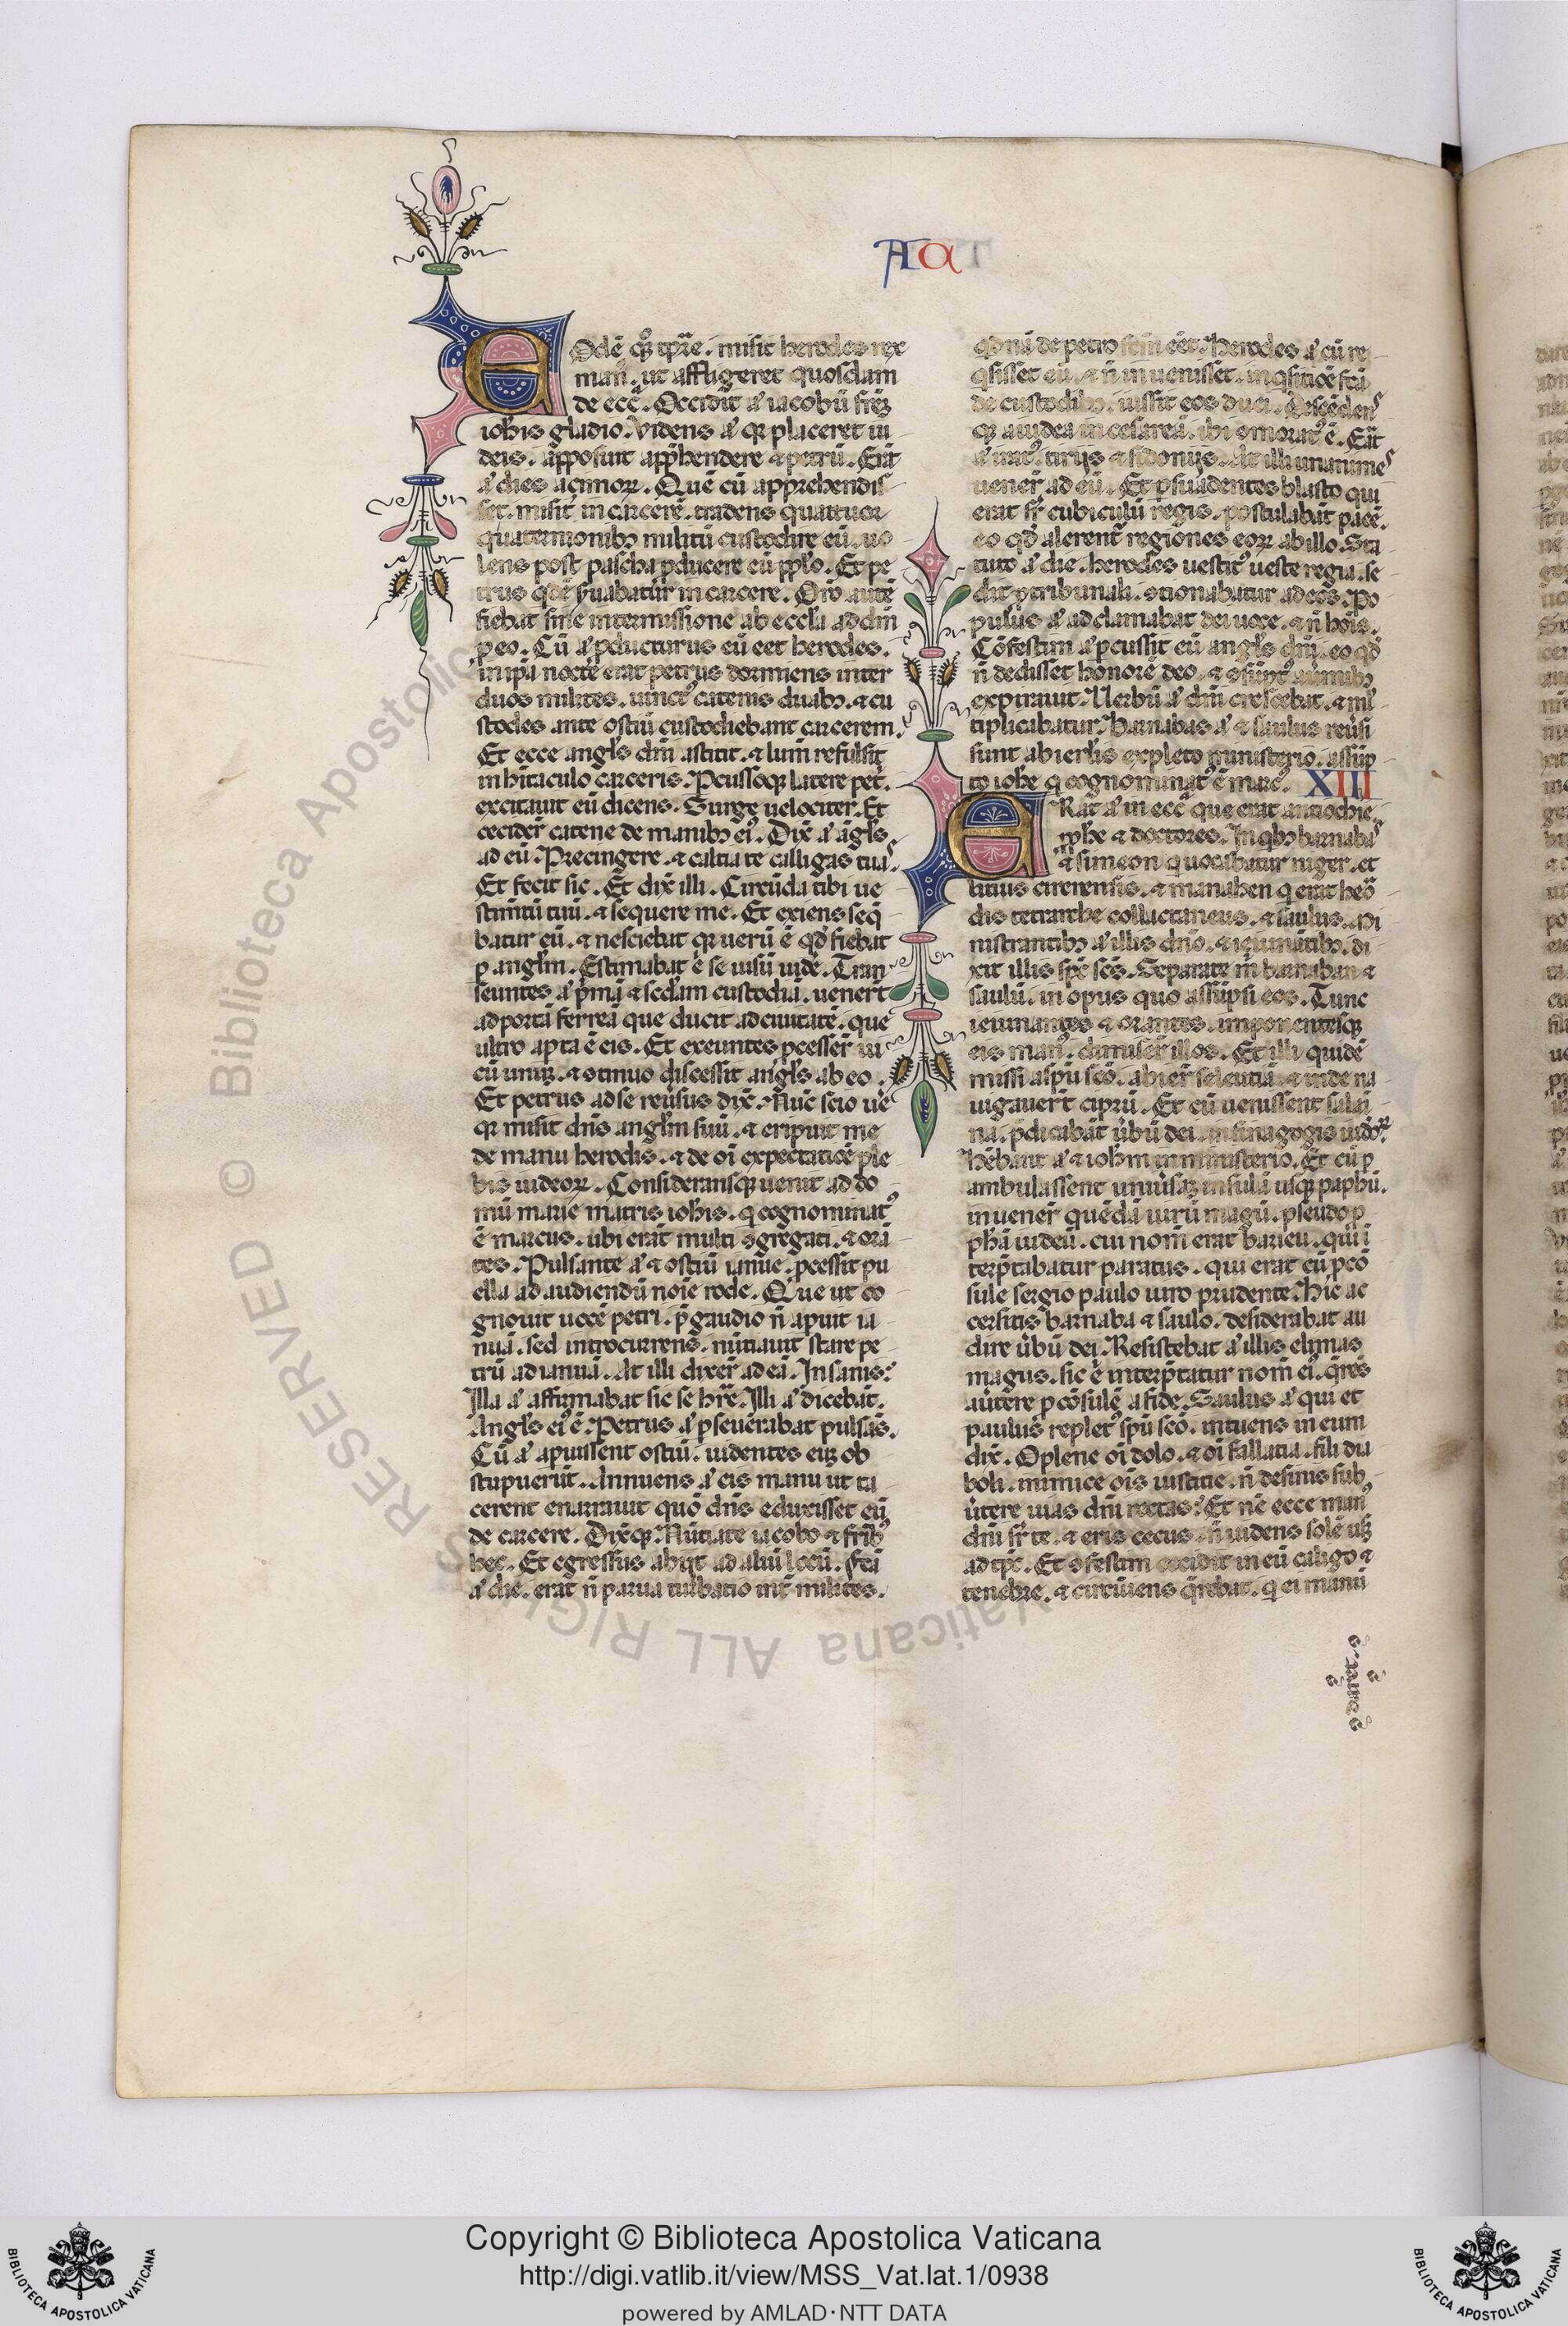 ACT
EOdē qꝫ tp̄re. misit herodes rex
man̄. ut affligeret quosdam
de ecc̄. Occidit a͛ iacobū fr̄eꝫ
ioh̄is gladio. Videns a͛ qꝛ placeret iu
deis. apposuit app̄hendere ⁊ petrū. Erāt
a͛ dies açimoꝝ. Quē cū apprehendis
set. misit in carcerē. tradens quattuor
quaternionibꝫ militū custodire eū. uo
lens post pascha ꝓducere eū pp̄lo. Et pe
trus qdē s͛uabatur in carcere. Or̄o autē
fiebat sine intermissione ab eccl̄a ad dm̄
ꝓ eo. Cū a͛ ꝓducturus eū eet herodes.
in ip̄a nocte erat petrus dormiens inter
duos milites. uinct᾽ catenis duabꝫ. ⁊ cu
stodes ante ostiū custodiebant carcerem.
Et ecce angl̄s dn̄i astitit. ⁊ lum̄ refulsit
in hitaculo carceris. Pcussoqꝫ latere pet͛.
excitauit eū dicens. Surge uelociter. Et
cecider̄ catene de manibꝫ ei᾽. Dix̄ a͛ āgl̄s
ad eū. Precingere. ⁊ calcia te calligas tuas
Et fecit sic. Et dix̄ illi. Circūda tibi ue
stimtū tuū. ⁊ sequere me. Et exiens seq̄
batur eū. ⁊ nesciebat qꝛ uerū ē qd̄ fiebat
ꝑ angl̄m. Estimabat a͛ se uisū uidē. Tran
seuntes a͛ p̄mā ⁊ scd̄am custodiā. uener̄t
ad portā ferreā que ducit ad ciuitatē. que
ultro apta ē eis. Et exeuntes ꝓcesser̄ ui
cū unuꝫ. ⁊ ꝯtinuo discessit angl̄s ab eo.
Et petrus ad se reu͛sus dix̄. Nūc scio ue͛
qꝛ misit dn̄s angl̄m suū. ⁊ eripuit me
de manu herodis. ⁊ de oī expectatiōe ple
bis iudeoꝝ. Consideransqꝫ uenit ad do
mū marie matris ioh̄is. q̇ cognominat᾽
ē marcus. ubi erāt multi ꝯgregati. ⁊ orā
tes. Pulsante a͛ eo ostiū ianue. ꝓcessit pu
ella ad audiendū noīe rode. Que ut co
gnouit uocē petri. p̄ gaudio n̄ apuit ia
nuā. sed introcurrens. nūtiauit stare pe
trū ad ianuā. At illi dixer̄ ad eā. Insanis?
Illa a͛ affirmabat sic se hr̄e. Illi a͛ dicebāt.
Angl̄s ei᾽ ē. Petrus a͛ pseuerabat pulsās.
Cū a͛ apuissent ostiū. uidentes euꝫ ob
stupuerūt. Annuens a͛ eis manu ut ta
cerent enarrauit quō dn̄s eduxisset eū
de carcere. Dix̄qꝫ. Nūtiate iacobo ⁊ frīb᾽
hec. Et egressus abijt ad aliū locū. Fc̄a
a͛ die. erat n̄ parua turbatio int̄ milites.
qd̄nā de petro fc̄m eēt. Herodes a͛ cū re
q̇sisset eū. ⁊ n̄ inuenisset. inq̇sitiōe fc̄a
de custodibꝫ. iussit eos duci. Descēdens
qꝫ a iudea in cesareā. ibi ꝯmorat᾽ ē. Erāt
a͛ irat᾽ tirijs ⁊ sidonijs. At illi unanimes
uener̄ ad eū. Et psuadentes blasto qui
erat sr̄ cubiculū regis. postulabāt pacē.
eo qd̄ alerent̄ regiones eoꝝ ab illo. Sta
tuto a͛ die. herodes uestit᾽ ueste regia. se
dit ꝓ tribunali. ꝯtionabatur ad eos. Po
pulus a͛ adclamabat dei uoce. ⁊ n̄ hoīs.
Cōfestim a͛ pcussit eū angl̄s dn̄i. eo qd̄
n̄ dedisset honorē deo. ⁊ ꝯsūpt᾽ a u͛mibꝫ
expirauit. Uerbū a͛ dn̄i crescebat. ⁊ ml̄
tiplicabatur. Barnabas a͛ ⁊ saulus reu͛si
sunt ab ierl̄is expleto ministerio. assūp
to ioh̄e q̇ cognominat᾽ ē marc᾽. XIII
ERat a͛ in ecc̄ que erat antiochie
ꝓph̄e ⁊ doctores. In qbꝫ barnabas
⁊ simeon q̇ uocabatur niger. et
lucius cirenensis. ⁊ manahen q̇ erat hero
dis tetrarche collactaneus. ⁊ saulus. Mi
nistrantibꝫ a͛ illis dn̄o. ⁊ ieiunātibꝫ. di
xit illis sp̄c sc̄s. Separate m̄ barnaban ⁊
saulū. in opus quo assūpsi eos. Tunc
ieiunantes ⁊ orantes. imponentesqꝫ
eis man᾽. dimiser̄ illos. Et illi quidē
missi a sp̄u sc̄o. abier̄ seleutiā. ⁊ inde na
uigauer̄t ciprū. Et cū uenissent salai
na. p̄dicabāt u͛bū dei. in sinagogis iudoꝝ.
Hēbant a͛ ⁊ ioh̄m in ministerio. Et cū p
ambulassent uniu͛saꝫ insulā usqꝫ paphū.
inuener̄ quēdā uirū magū. pseudo ꝓ
phā iudeū. cui nom̄ erat barieu. qui ī
terp̄tabatur paratus. qui erat cū ꝓcō
sule sergio paulo uiro prudente. Hic ac
cersitis barnaba ⁊ saulo. desiderabat au
dire u͛bū dei. Resistebat a͛ illis elimas
magus. sic ē interp̄tatur nom̄ ei᾽. q̄res
au͛tere ꝓcōsulē a fide. Saulus a͛ qui et
paulus replet᾽ sp̄u sc̄o. intuens in eum
dix̄. O plene oī dolo. ⁊ oī fallatia. fili dia
boli. inimice oīs iustitie. n̄ desinis sub
u͛tere uias dn̄i rectas? Et nc̄ ecce man᾽
dn̄i sr̄ te. ⁊ eris cecus. n̄ uidens solē usqꝫ
ad tp̄c. Et ꝯfestim cecidit in eū caligo ⁊
tenebre. ⁊ circūiens q̄rebat. q̇ ei manū
daret
Biblioteca Apostolica Vaticana ALL RIGHTS RESERVED ©
Copyright © Biblioteca Apostolica Vaticana
http://digi.vatlib.it/view/MSS_Vat.lat.1/0938
powered by AMLAD·NTT DATA
BIBLIOTECA APOSTOLICA VATICANA
BIBLIOTECA APOSTOLICA VATICANA